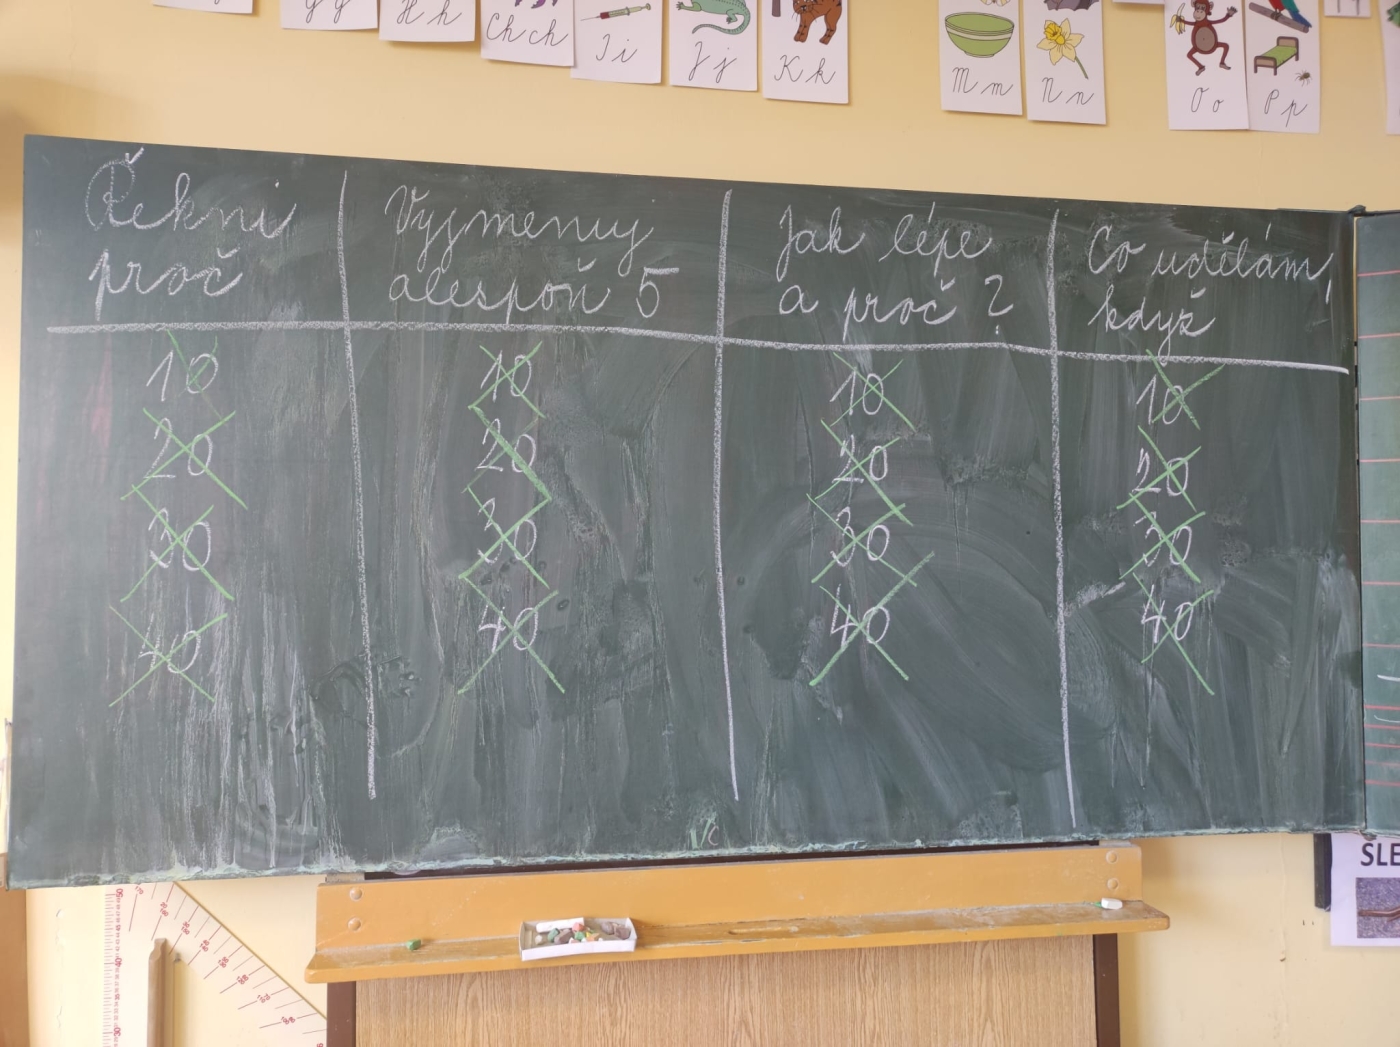 H h
Ch ch
I i
J j
K k
M m
N n
O o
P p
Řekni
proč
Vyjmenuj
alespoň 5
Jak lépe
a proč ?
Co udělám,
když
10 10 10 10
20 20 20 20
30 30 30 30
40 40 40 40
SLE